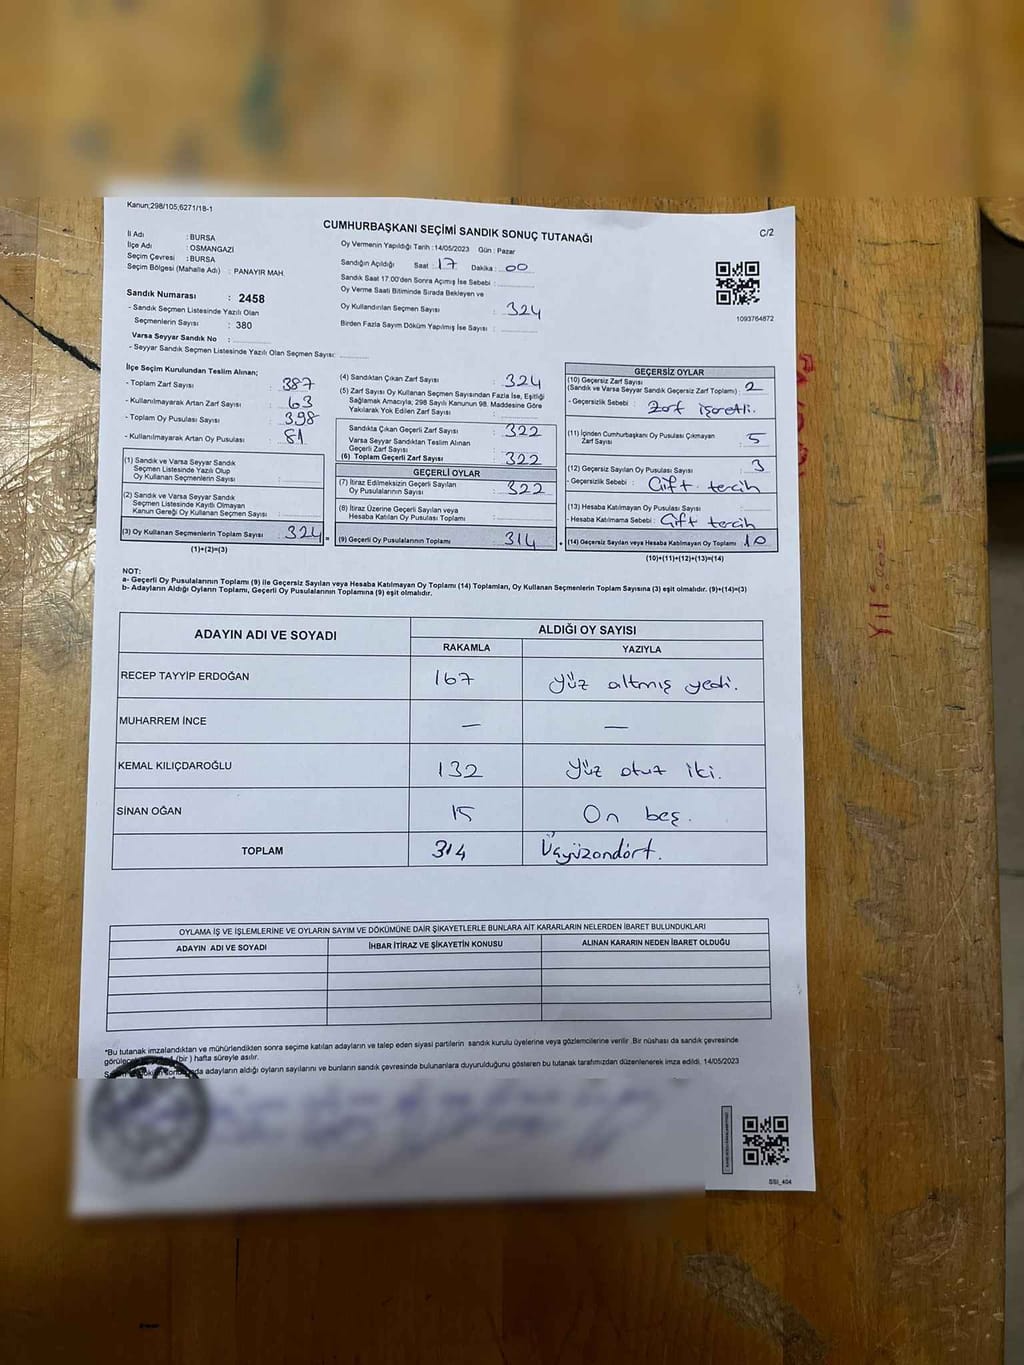 Kanun;298/105;6271/18-1
CUMHURBAŞKANI SEÇİMİ SANDIK SONUÇ TUTANAĞI
C/2
İl Adı : BURSA
İlçe Adı : OSMANGAZİ
Seçim Çevresi : BURSA
Seçim Bölgesi (Mahalle Adı) : PANAYIR MAH.
Sandık Numarası : 2458
- Sandık Seçmen Listesinde Yazılı Olan
Seçmenlerin Sayısı : 380
Varsa Seyyar Sandık No :
- Seyyar Sandık Seçmen Listesinde Yazılı Olan Seçmen Sayısı:
Oy Vermenin Yapıldığı Tarih :14/05/2023 Gün : Pazar
Sandığın Açıldığı Saat : 17 Dakika : 00
Sandık Saat 17.00'den Sonra Açımış İse Sebebi :
Oy Verme Saati Bitiminde Sırada Bekleyen ve
Oy Kullandırılan Seçmen Sayısı : 324
Birden Fazla Sayım Döküm Yapılmış İse Sayısı :
1093764872
İlçe Seçim Kurulundan Teslim Alınan;
- Toplam Zarf Sayısı : 387
- Kullanılmayarak Artan Zarf Sayısı : 63
- Toplam Oy Pusulası Sayısı : 398
- Kullanılmayarak Artan Oy Pusulası : 81
(1) Sandık ve Varsa Seyyar Sandık
Seçmen Listesinde Yazılı Olup
Oy Kullanan Seçmenlerin Sayısı :
(2) Sandık ve Varsa Seyyar Sandık
Seçmen Listesinde Kayıtlı Olmayan
Kanun Gereği Oy Kullanan Seçmen Sayısı :
(3) Oy Kullanan Seçmenlerin Toplam Sayısı : 324
(1)+(2)=(3)
(4) Sandıktan Çıkan Zarf Sayısı : 324
(5) Zarf Sayısı Oy Kullanan Seçmen Sayısından Fazla İse, Eşitliği
Sağlamak Amacıyla, 298 Sayılı Kanunun 98. Maddesine Göre
Yakılarak Yok Edilen Zarf Sayısı :
Sandıkta Çıkan Geçerli Zarf Sayısı : 322
Varsa Seyyar Sandıktan Teslim Alınan
Geçerli Zarf Sayısı :
(6) Toplam Geçerli Zarf Sayısı : 322
GEÇERLİ OYLAR
(7) İtiraz Edilmeksizin Geçerli Sayılan
Oy Pusulalarının Sayısı : 322
(8) İtiraz Üzerine Geçerli Sayılan veya
Hesaba Katılan Oy Pusulası Toplamı :
(9) Geçerli Oy Pusulalarının Toplamı : 314
GEÇERSİZ OYLAR
(10) Geçersiz Zarf Sayısı
(Sandık ve Varsa Seyyar Sandık Geçersiz Zarf Toplamı) : 2
- Geçersizlik Sebebi : Zarf işaretli.
(11) İçinden Cumhurbaşkanı Oy Pusulası Çıkmayan
Zarf Sayısı : 5
(12) Geçersiz Sayılan Oy Pusulası Sayısı : 3
- Geçersizlik Sebebi : Çift tercih
(13) Hesaba Katılmayan Oy Pusulası Sayısı :
- Hesaba Katılmama Sebebi : Çift tercih
(14) Geçersiz Sayılan veya Hesaba Katılmayan Oy Toplamı : 10
(10)+(11)+(12)+(13)=(14)
NOT:
a- Geçerli Oy Pusulalarının Toplamı (9) ile Geçersiz Sayılan veya Hesaba Katılmayan Oy Toplamı (14) Toplamları, Oy Kullanan Seçmenlerin Toplam Sayısına (3) eşit olmalıdır. (9)+(14)=(3)
b- Adayların Aldığı Oyların Toplamı, Geçerli Oy Pusulalarının Toplamına (9) eşit olmalıdır.
ADAYIN ADI VE SOYADI ALDIĞI OY SAYISI
RAKAMLA YAZIYLA
RECEP TAYYİP ERDOĞAN 167 Yüz altmış yedi.
MUHARREM İNCE — —
KEMAL KILIÇDAROĞLU 132 Yüz otuz iki.
SİNAN OĞAN 15 On beş.
TOPLAM 314 Üçyüzondört.
OYLAMA İŞ VE İŞLEMLERİNE VE OYLARIN SAYIM VE DÖKÜMÜNE DAİR ŞİKAYETLERLE BUNLARA AİT KARARLARIN NELERDEN İBARET BULUNDUKLARI
ADAYIN ADI VE SOYADI İHBAR İTİRAZ VE ŞİKAYETİN KONUSU ALINAN KARARIN NEDEN İBARET OLDUĞU
*Bu tutanak imzalandıktan ve mühürlendikten sonra seçime katılan adayların ve talep eden siyasi partilerin sandık kurulu üyelerine veya gözlemcilerine verilir .Bir nüshası da sandık çevresinde
(bir ) hafta süreyle asılır.
adayların aldığı oyların sayılarını ve bunların sandık çevresinde bulunanlara duyurulduğunu gösteren bu tutanak tarafımızdan düzenlenerek imza edildi. 14/05/2023
SSI_404